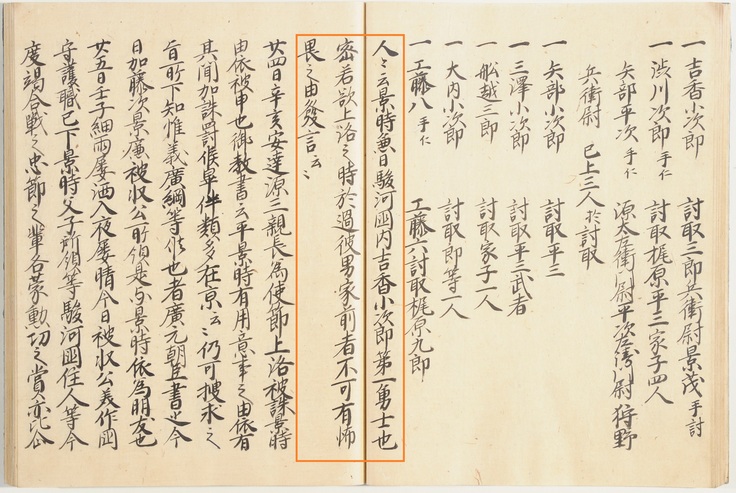 一 吉香小次郎 討取三郎兵衛尉景茂 手討
一 渋川次郎 手仁 討取梶原平三家子四人
矢部平次 手仁 源太左衛門尉平次左衛門尉 狩野
兵衛尉 已上三人於討取
一 矢部小次郎 討取平三
一 三澤小次郎 討取平三武者
一 舩越三郎 討取家子一人
一 大内小次郎 討取郎等一人
一 工藤八 手仁 工藤六討取梶原九郎
人々云景時兼日駿河國内吉香小次郎第一勇士也
密若欲上洛之時於過彼男家前者不可有怖
畏之由發言云々
廿四日辛亥安達源三親長為使節上洛被誅景時
由依被申也御教書云平景時有用意事之由依有
其聞加誅罸候畢伴類多在京云々仍可捜求之
旨所下知惟義廣綱等給也者廣元朝臣書之今
日加藤次景廉被収公所領是与景時依為朋友也
廿五日壬子細雨屡洒入夜屡晴今日被収公美作國
守護職已下景時父子所領等駿河國住人等今
度竭合戦之忠節之輩各蒙勲功之賞亦比企